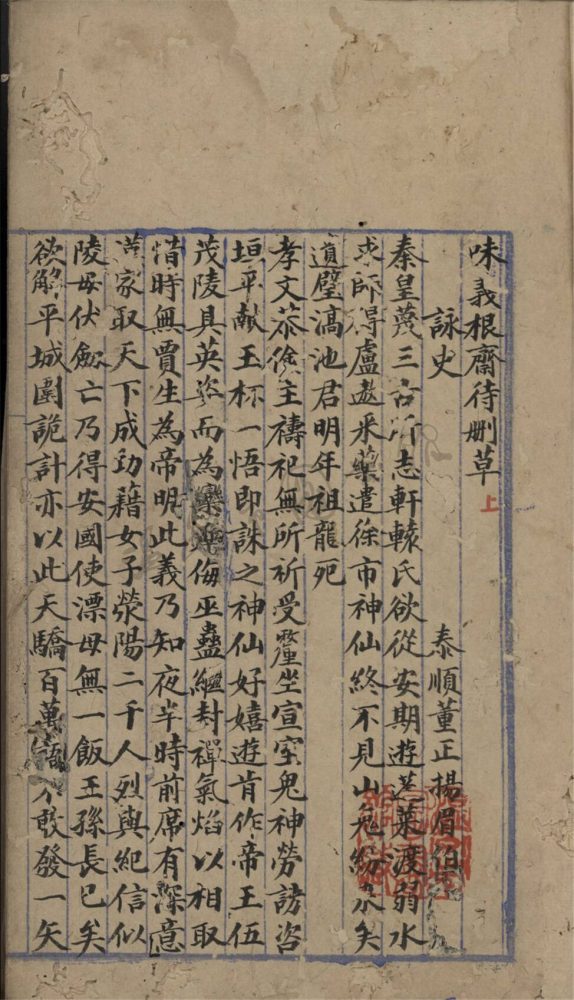 味義根齋待刪草 上
詠史 泰順董正揚眉伯
秦皇蔑三古所志軒轅氏欲從安期遊蓬萊渡弱水
求師得盧敖采藥遣徐市神仙終不見山鬼紛來矣
遺璧滈池君明年祖龍死
孝文恭儉主禱祀無所祈受釐坐宣室鬼神勞訪咨
垣平獻玉杯一悟即誅之神仙好嬉遊肯作帝王伍
茂陵具英姿而為欒大侮巫蠱繼封禪氣焰以相取
惜時無賈生為帝明此義乃知夜半時前席有深意
漢家取天下成功藉女子滎陽二千人烈與紀信似
陵母伏劍亡乃得安國使漂母無一飯王孫長已矣
欲解平城圍詭計亦以此天驕百萬不敢發一矢